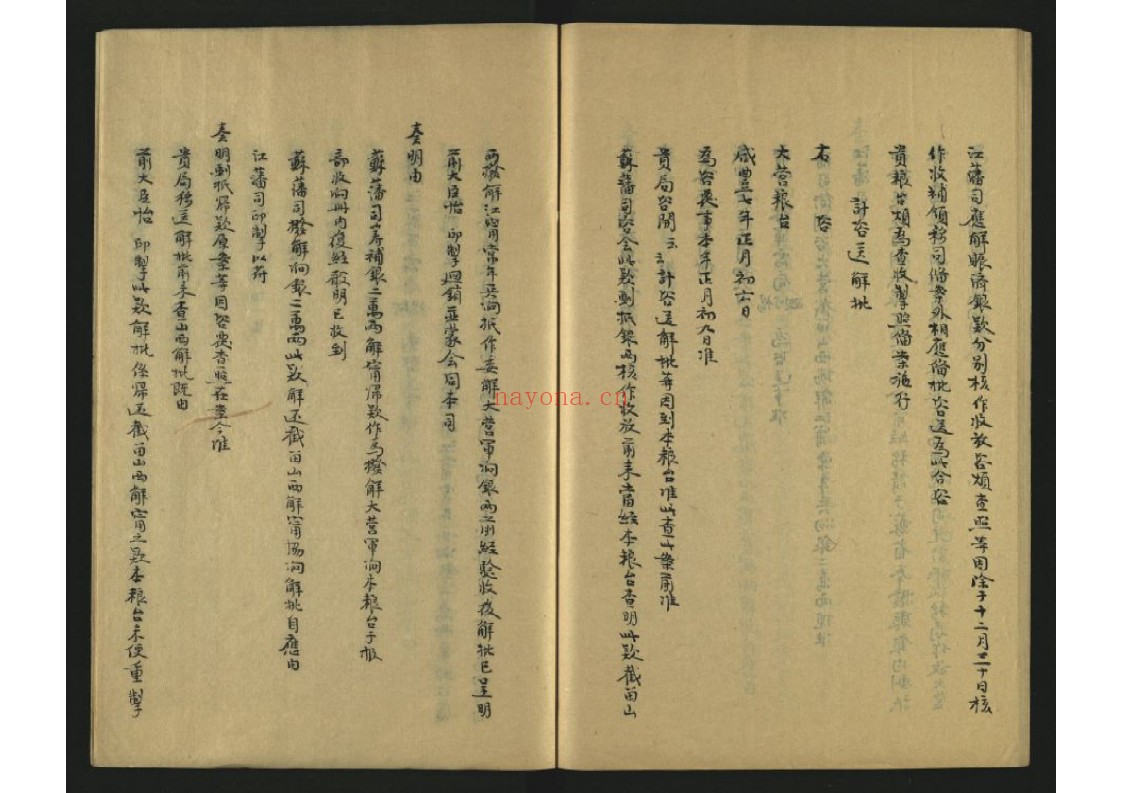 江藩司應解賑濟銀款分別核作收放咨煩查照等因除于十二月二十日核
作收補領移司備案外相應備批咨送爲此合咨
貴粮台煩爲查收掣照備案施行
計咨送解批
右咨
大營粮台
咸豐七年正月初六日
爲咨覆事本年正月初九日准
貴局咨開云云計咨送解批等因到本粮台准此查此案前准
蘇藩司咨会此款劃抵銀兩核作收放前来當經本粮台查明此款截留山
西撥解江甯常年兵餉抵作委解大營軍餉銀兩之用經驗收後解批已呈明
前大臣怡 印掣迴銷並蒙会同本司
奏明由
蘇藩司籌補銀二萬兩解甯歸款作爲撥解大營軍餉本粮台于報
部收餉冊内復經敘明已收到
蘇藩司撥解餉銀二萬兩此款解还截留山西解甯協餉解批自應由
江藩司印掣以符
奏明劃抵歸款原案等因咨覆查照在案今准
貴局移送解批前来查山西解批既由
前大臣怡 印掣此款解批係歸還截留山西解甯之款本粮台未便重掣
nayona.cn